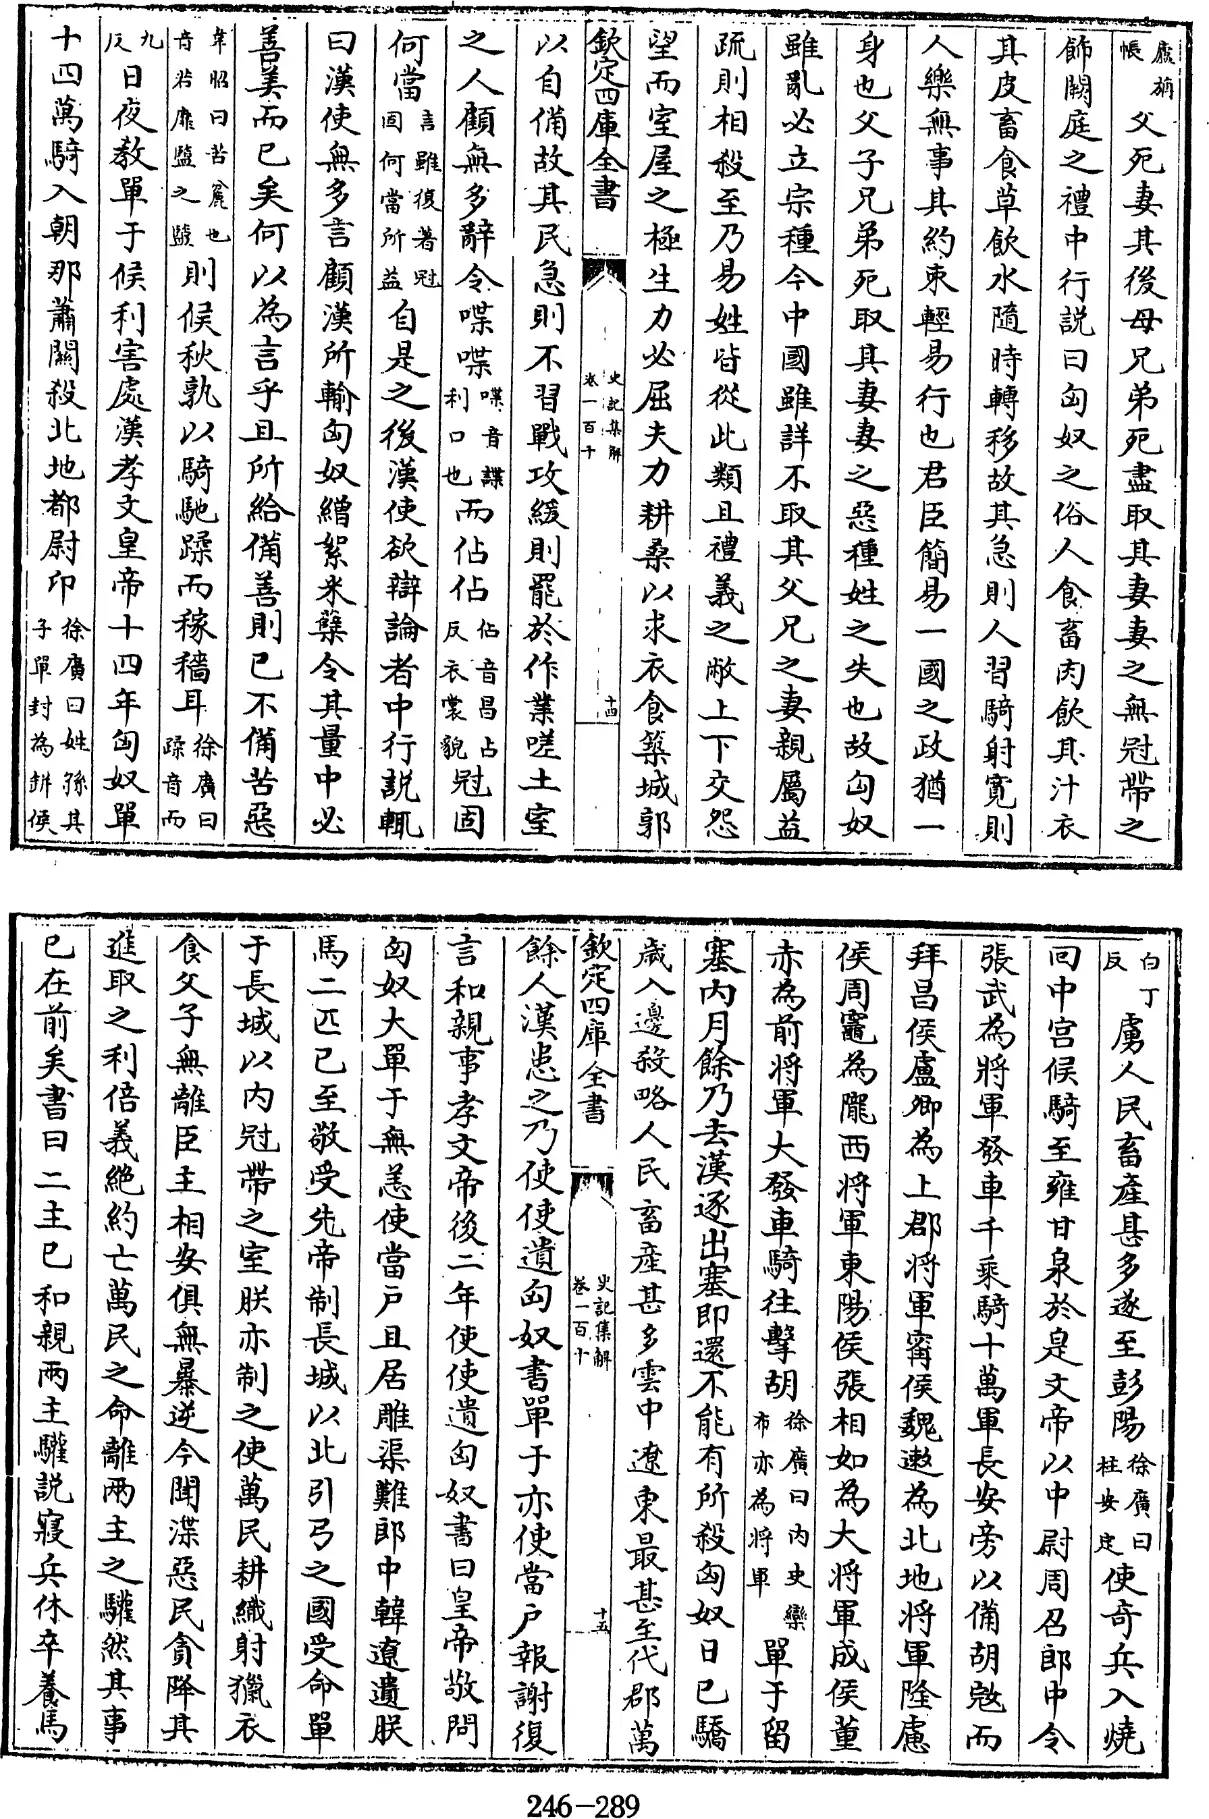 廬旃帳父死妻其後母兄弟死盡取其妻妻之無冠帶之
飾闕庭之禮中行説曰匈奴之俗人食畜肉飲其汁衣
其皮畜食草飲水隨時轉移故其急則人習騎射寛則
人樂無事其約束輕易行也君臣簡易一國之政猶一
身也父子兄弟死取其妻妻之惡種姓之失也故匈奴
雖亂必立宗種今中國雖詳不取其父兄之妻親屬益
疏則相殺至乃易姓皆從此類且禮義之敝上下交怨
望而室屋之極生力必屈夫力耕桑以求衣食築城郭
欽定四庫全書
史記集解
卷一百十
十四
以自備故其民急則不習戰攻緩則罷於作業嗟土室
之人顧無多辭令喋喋喋音諜利口也而佔佔佔音昌占反衣裳貌冠固
何當言雖復著冠固何當所益自是之後漢使欲辯論者中行説輒
曰漢使無多言顧漢所輸匈奴繒絮米糵令其量中必
善美而已矣何以為言乎且所給備善則已不備苦惡
韋昭曰苦麄也音若靡盬之盬則候秋孰以騎馳蹂而稼穡耳徐廣曰蹂音而
九反日夜教單于候利害處漢孝文皇帝十四年匈奴單
十四萬騎入朝那蕭關殺北地都尉卬徐廣曰姓孫其子單封為缾侯
白丁反虜人民畜産甚多遂至彭陽徐廣曰在安定使奇兵入燒
回中宫候騎至雍甘泉於是文帝以中尉周召郎中令
張武為將軍發車千乘騎十萬軍長安旁以備胡宼而
拜昌侯盧卿為上郡將軍甯侯魏遬為北地將軍隆慮
侯周竈為隴西將軍東陽侯張相如為大將軍成侯董
赤為前將軍大發車騎往擊胡徐廣曰内史欒布亦為將軍單于留
塞内月餘乃去漢逐出塞即還不能有所殺匈奴日已驕
歲入邊殺略人民畜産甚多雲中遼東最甚至代郡萬
欽定四庫全書
史記集解
卷一百十
十五
餘人漢患之乃使使遺匈奴書單于亦使當户報謝復
言和親事孝文帝後二年使使遺匈奴書曰皇帝敬問
匈奴大單于無恙使當户且居雕渠難郎中韓遼遺朕
馬二匹已至敬受先帝制長城以北引弓之國受命單
于長城以内冠帶之室朕亦制之使萬民耕織射獵衣
食父子無離臣主相安俱無暴逆今聞渫惡民貪降其
進取之利倍義絶約亡萬民之命離兩主之驩然其事
已在前矣書曰二主已和親兩主驩説寢兵休卒養馬
246-289